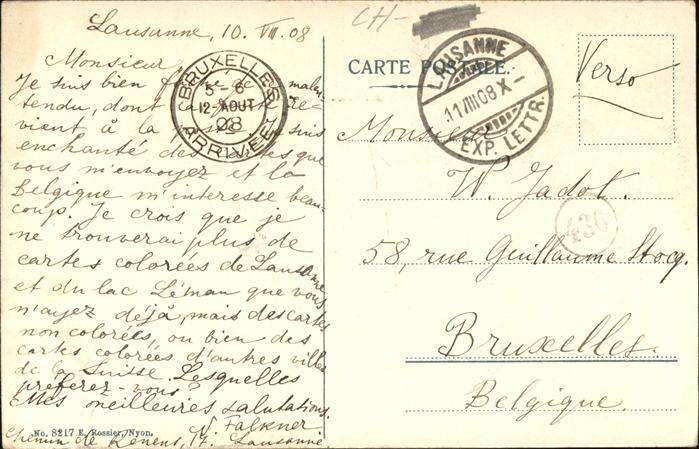 Lausanne, 10. VIII. 08
Monsieur,
Je suis bien malen-
tendu, dont re-
vient, à la Je suis
enchanté des cartes que
vous m'envoyez et la
Belgique m'interesse beau-
coup. Je crois que je
ne trouverai plus de
cartes colorées de Lausanne
et du lac Léman que vous
n'ayez déjà, mais des cartes
non colorées, ou bien des
cartes colorées d'autres villes
de la Suisse. Lesquelles
préférez-vous?
Mes meilleures salutations.
N. Falkner
Chemin de Renens, 17. Lausanne
No. 8217 E. Rossier, Nyon.
BRUXELLES
5-6
12-AOUT
08
ARRIVÉE
CH-
CARTE POSTALE.
LAUSANNE
11 VIII 08 X -
EXP. LETTR.
Verso
Monsieur
W. Jadot.
430
58, rue Guillaume Stocq.
Bruxelles.
Belgique.